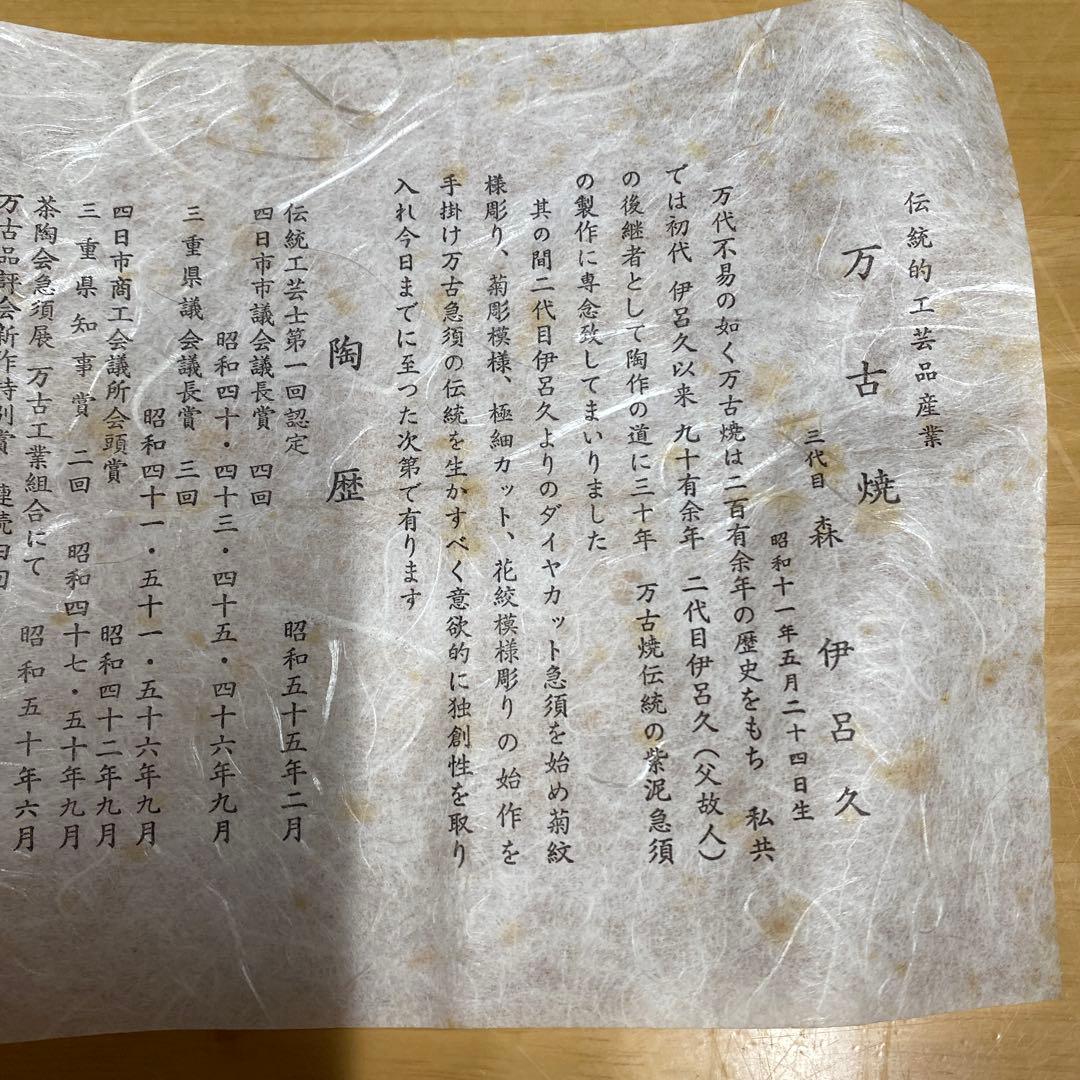 伝統的工芸品産業
万古焼
三代目 森 伊呂久
昭和十一年五月二十四日生
万代不易の如く万古焼は二百有余年の歴史をもち 私共
では初代 伊呂久以来 九十有余年 二代目伊呂久(父故人)
の後継者として陶作の道に三十年 万古焼伝統の紫泥急須
の製作に専念致してまいりました
其の間二代目伊呂久よりのダイヤカット急須を始め菊紋
様彫り、菊彫模様、極細カット、花絞模様彫りの始作を
手掛け万古急須の伝統を生かすべく意欲的に独創性を取り
入れ今日までに至つた次第で有ります
陶歴
伝統工芸士第一回認定 昭和五十五年二月
四日市市議会議長賞 四回
昭和四十・四十三・四十五・四十六年九月
三重県議会議長賞 三回
昭和四十一・五十一・五十六年九月
四日市商工会議所会頭賞 昭和四十二年九月
三重県知事賞 二回 昭和四十七・五十年九月
茶陶会急須展 万古工業組合にて 昭和五十年六月
万古品評会新作特別賞 連続四回